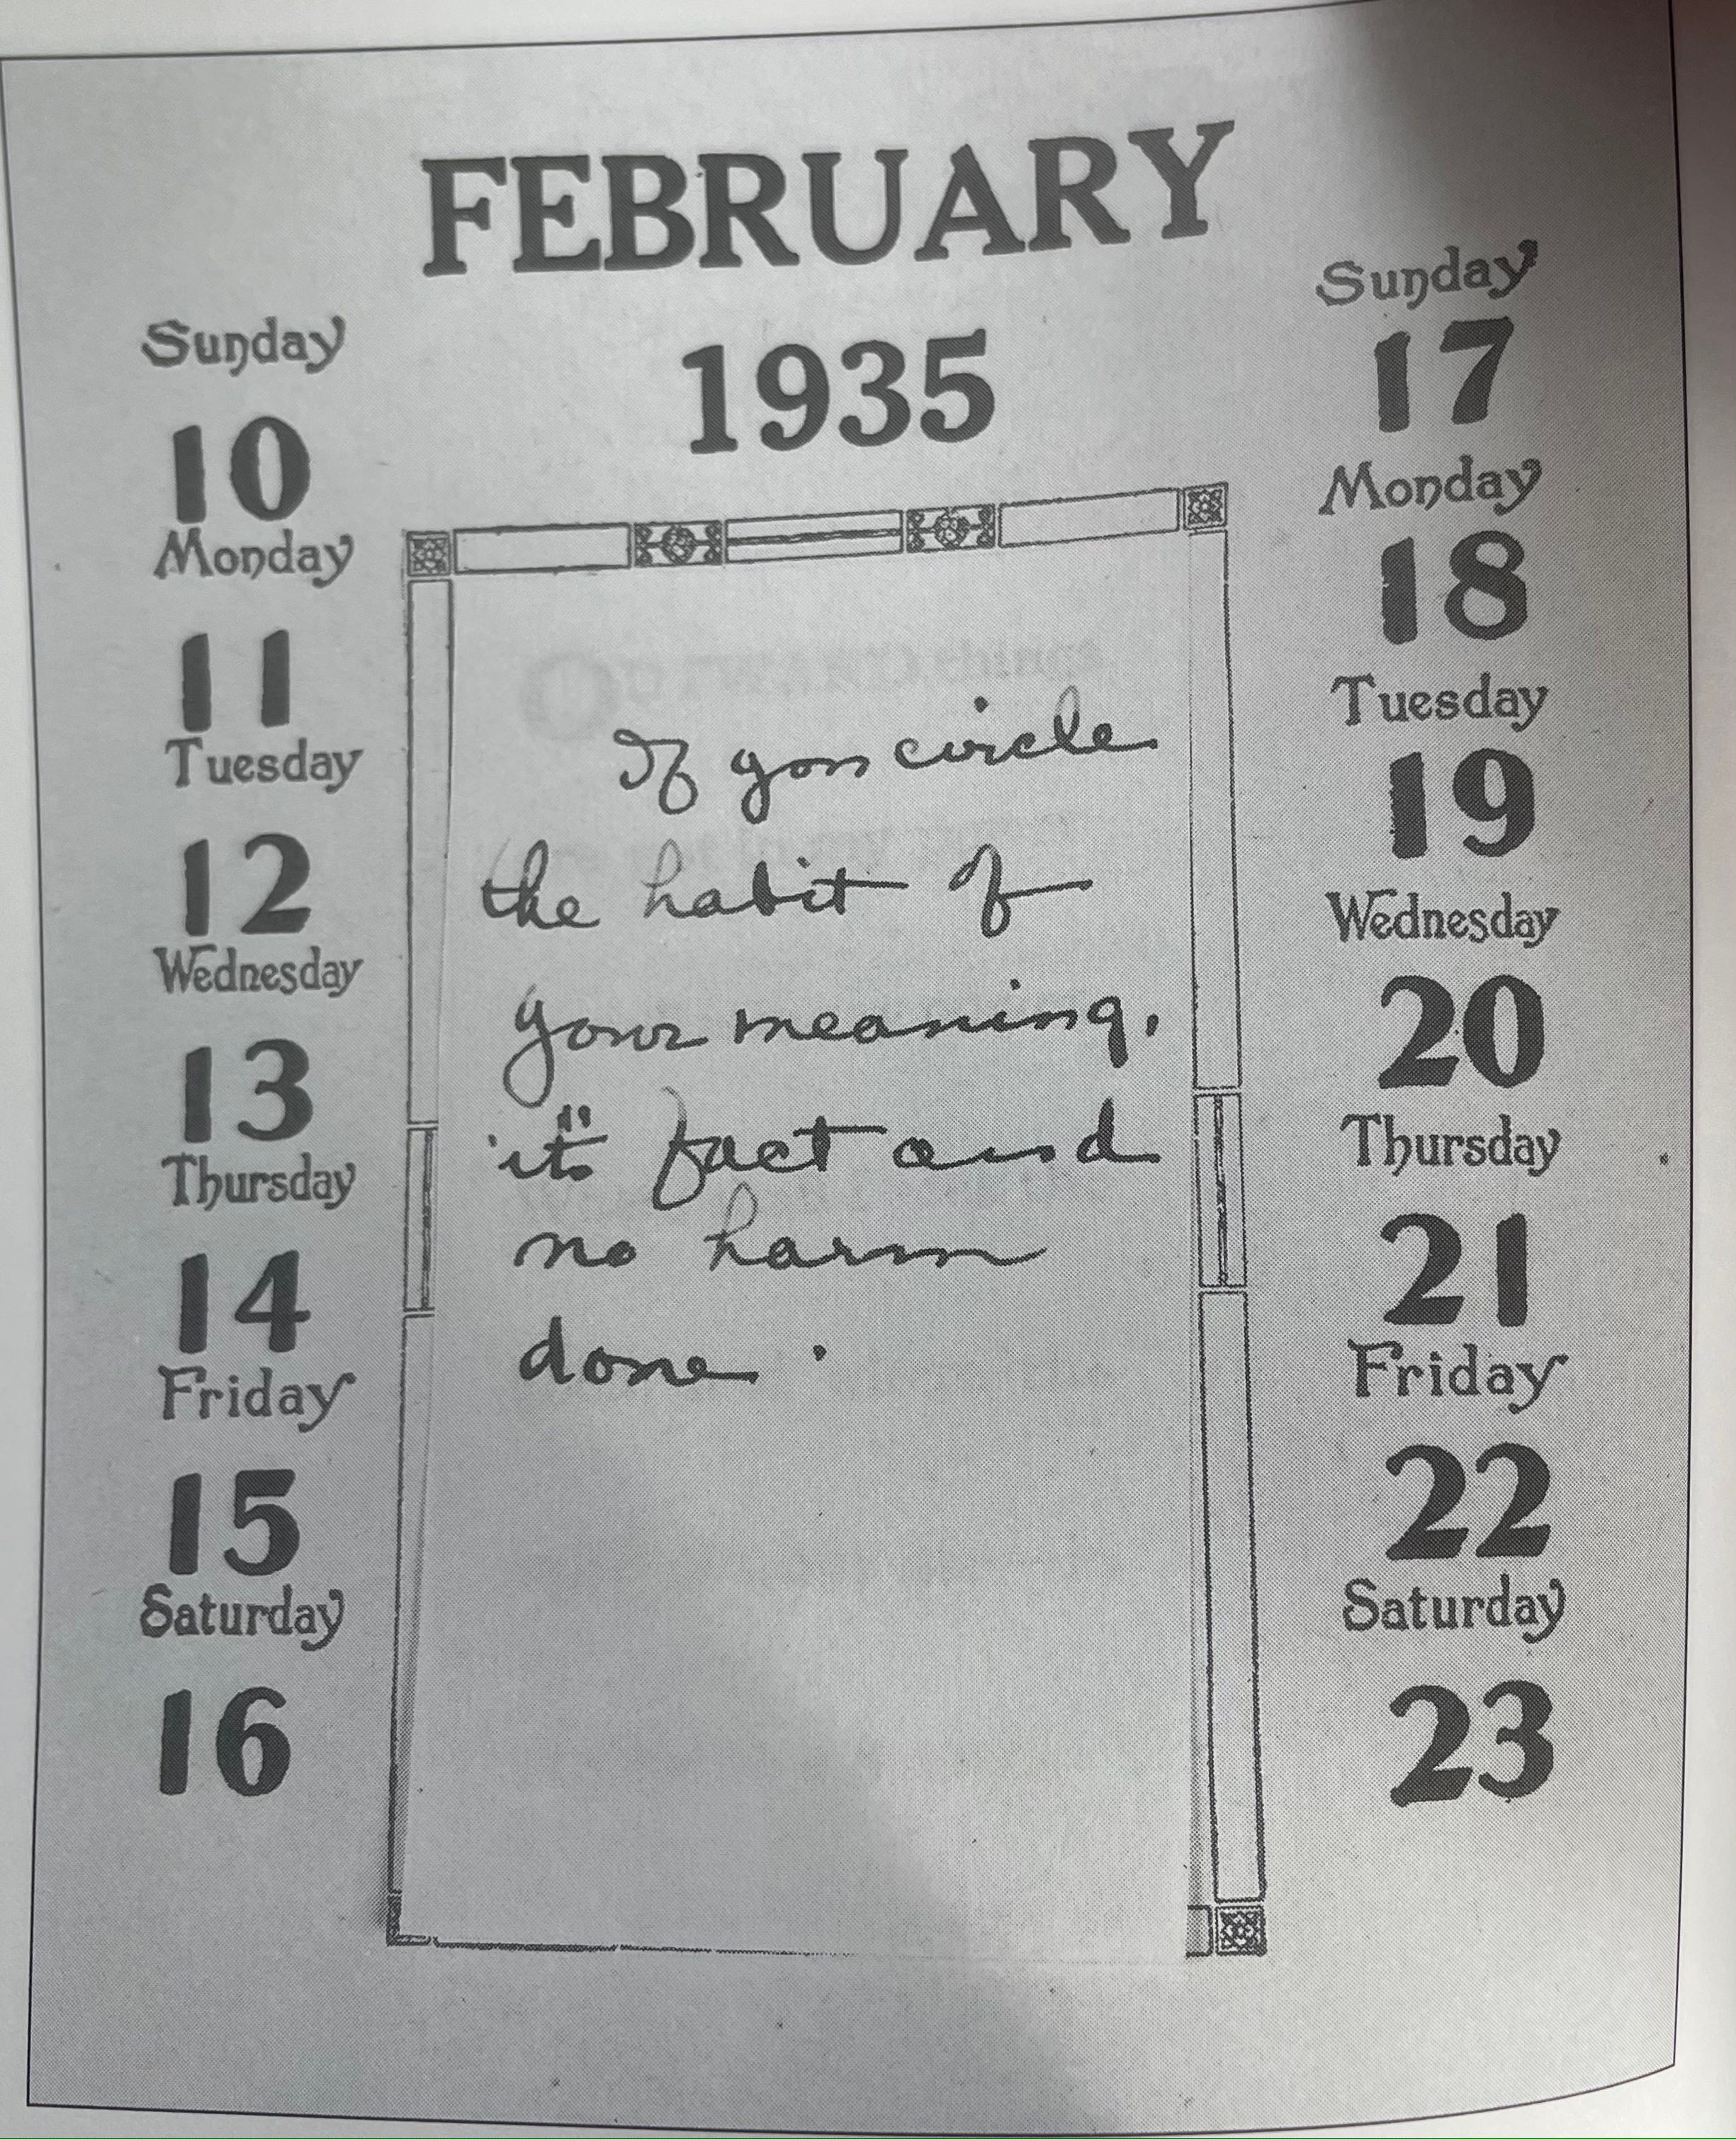 FEBRUARY
1935
Sunday
10
Monday
11
Tuesday
12
Wednesday
13
Thursday
14
Friday
15
Saturday
16
If you circle
the habit of
your meaning,
it's fact and
no harm
done .
Sunday
17
Monday
18
Tuesday
19
Wednesday
20
Thursday
21
Friday
22
Saturday
23